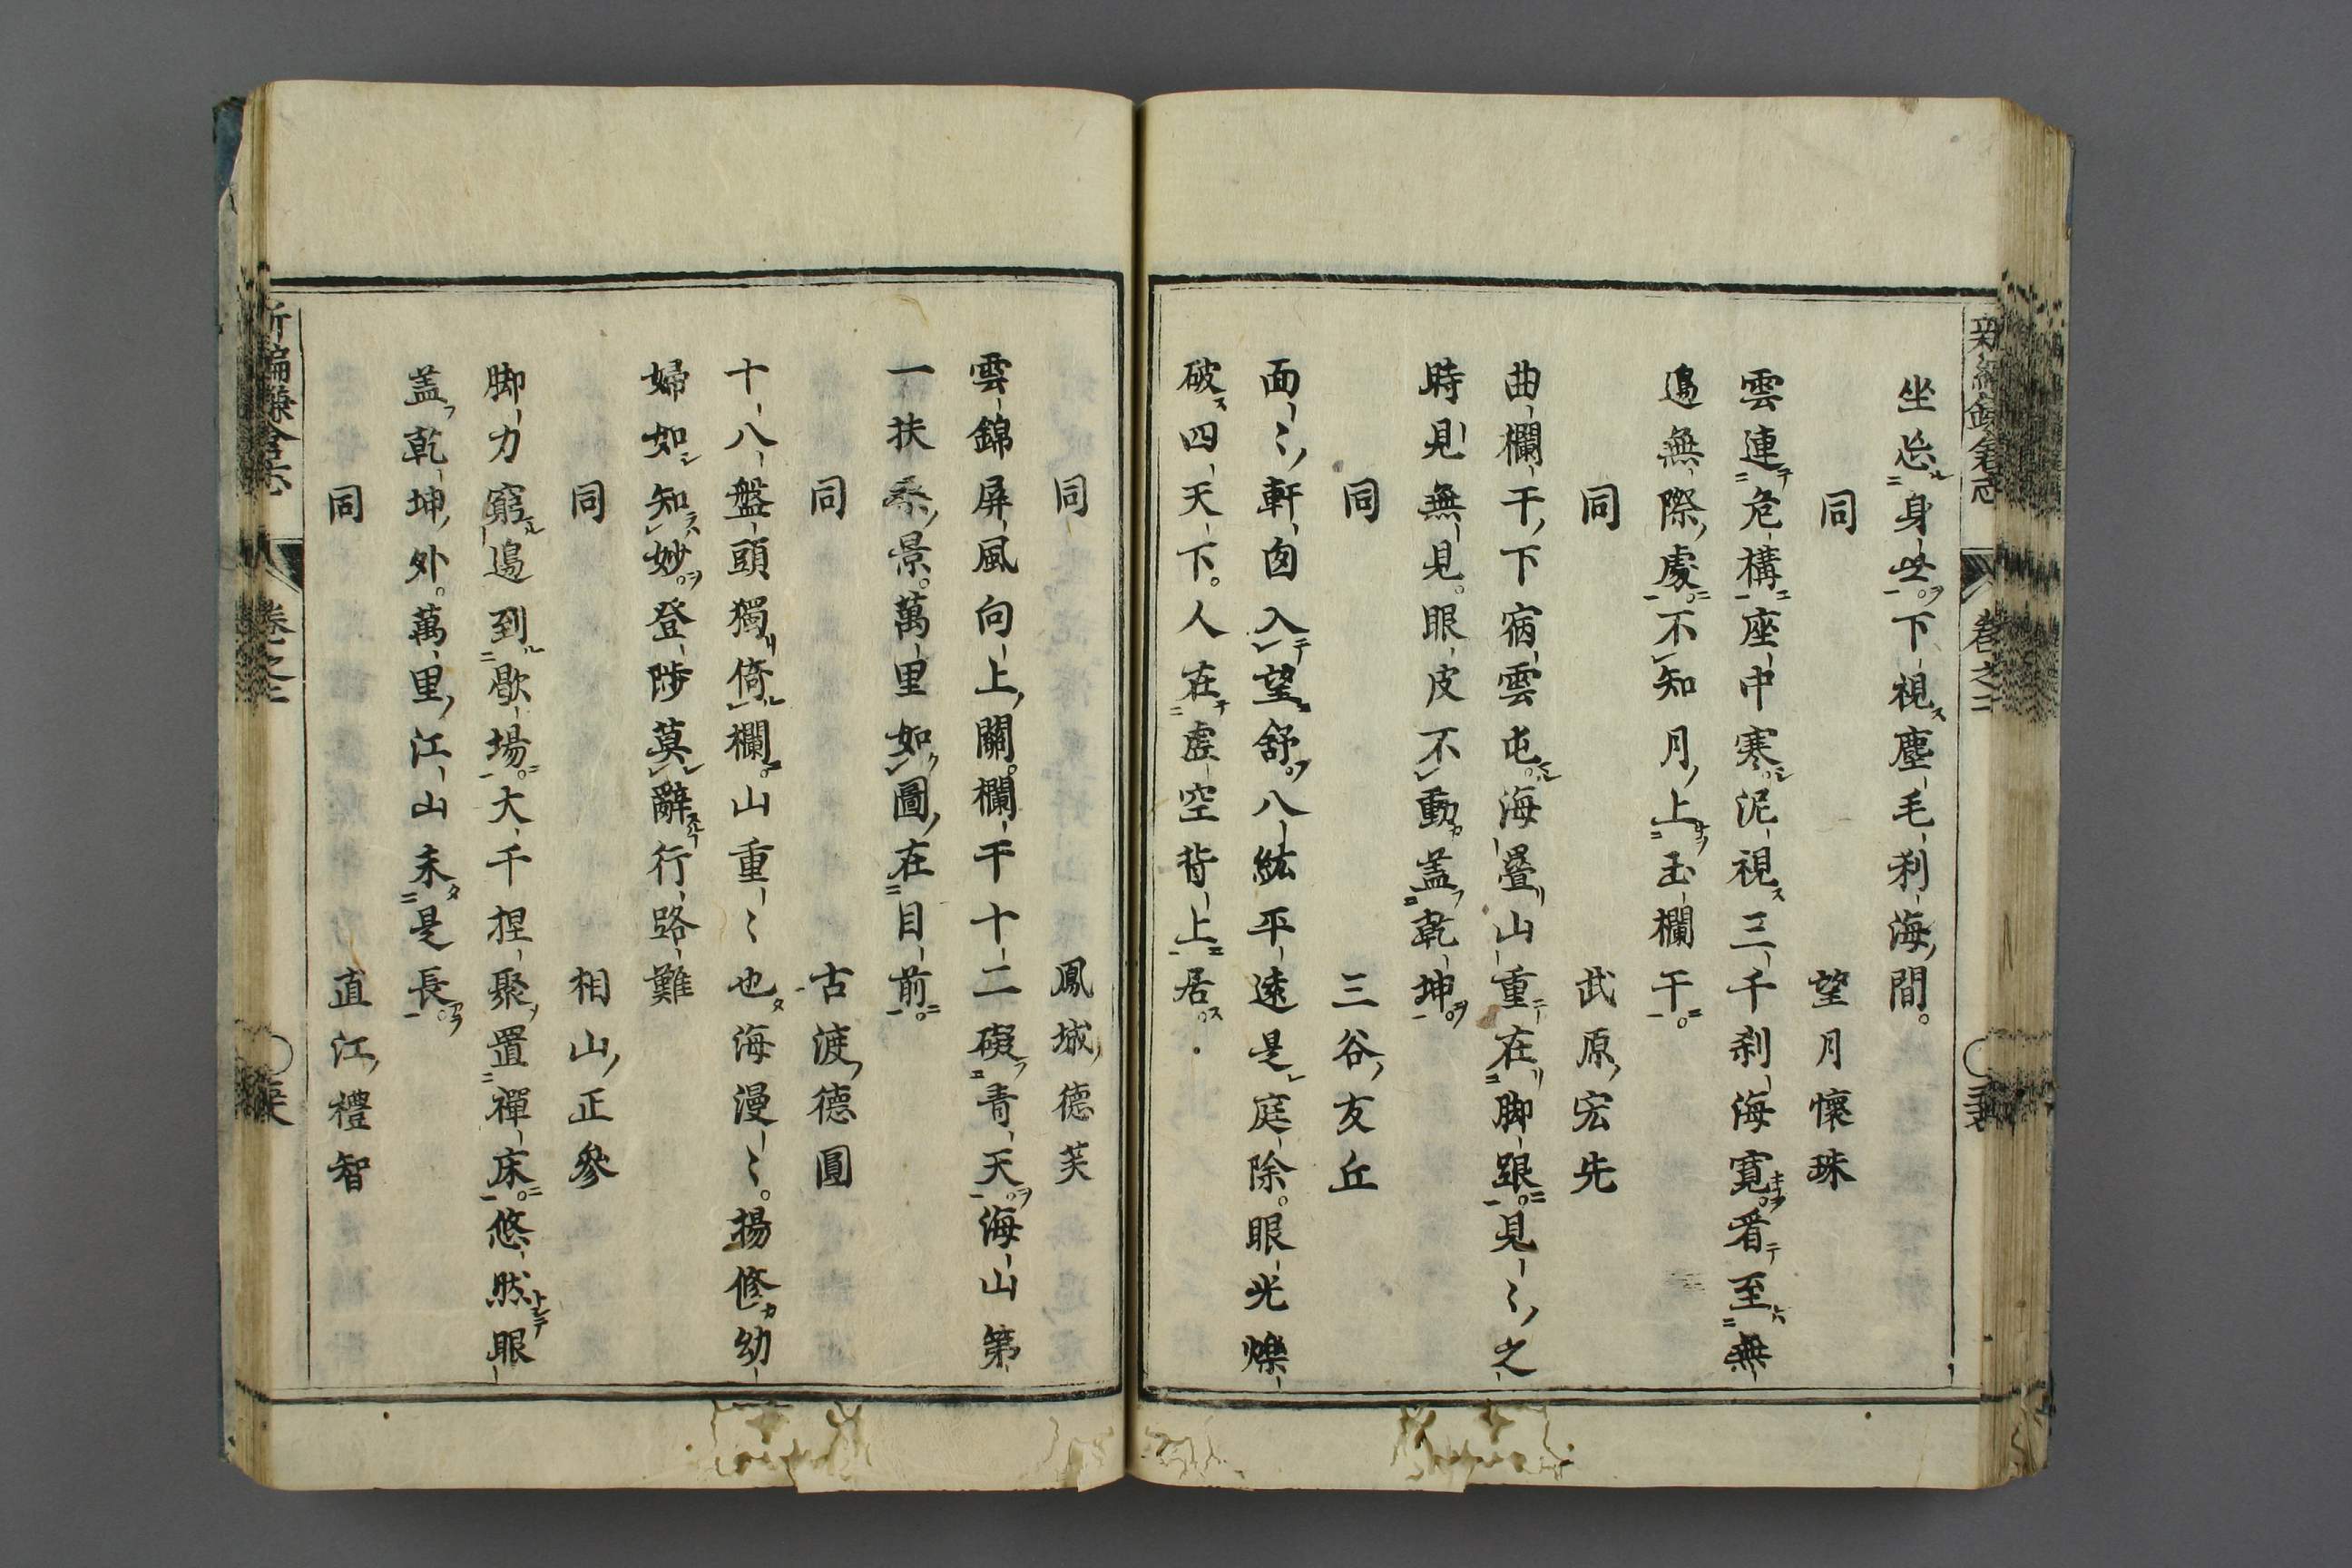 坐忘身世下視塵毛刹海間。
同　望月懷珠
雲連危構座中寒泥視三千刹海寬看至無
邊無際處不知月上玉欄干。
同　武原宏先
曲欄干下宿雲屯海疊山重在脚跟。見〻之
時見無見。眼皮不動蓋乾坤
同　三谷友丘
面〻軒囱入望舒。八紘平遠是庭除。眼光爍
破四天下。人在虛空背上居。
同　鳳城德芙
雲錦屏風向上關。欄干十二礙青天。海山第
一扶桑景。萬里如圖在目前。
同　古渡德圓
十八盤頭獨倚欄。山重〻也海漫〻。揚修幼
婦如知妙。登陟莫辭行路難
同　相山正參
脚力窮邊到歇場。大千捏聚置禪床。悠然眼
蓋乾坤外。萬里江山未是長。
同　直江禮智
新編鎌倉志　卷之二
新編鎌倉志　卷之二